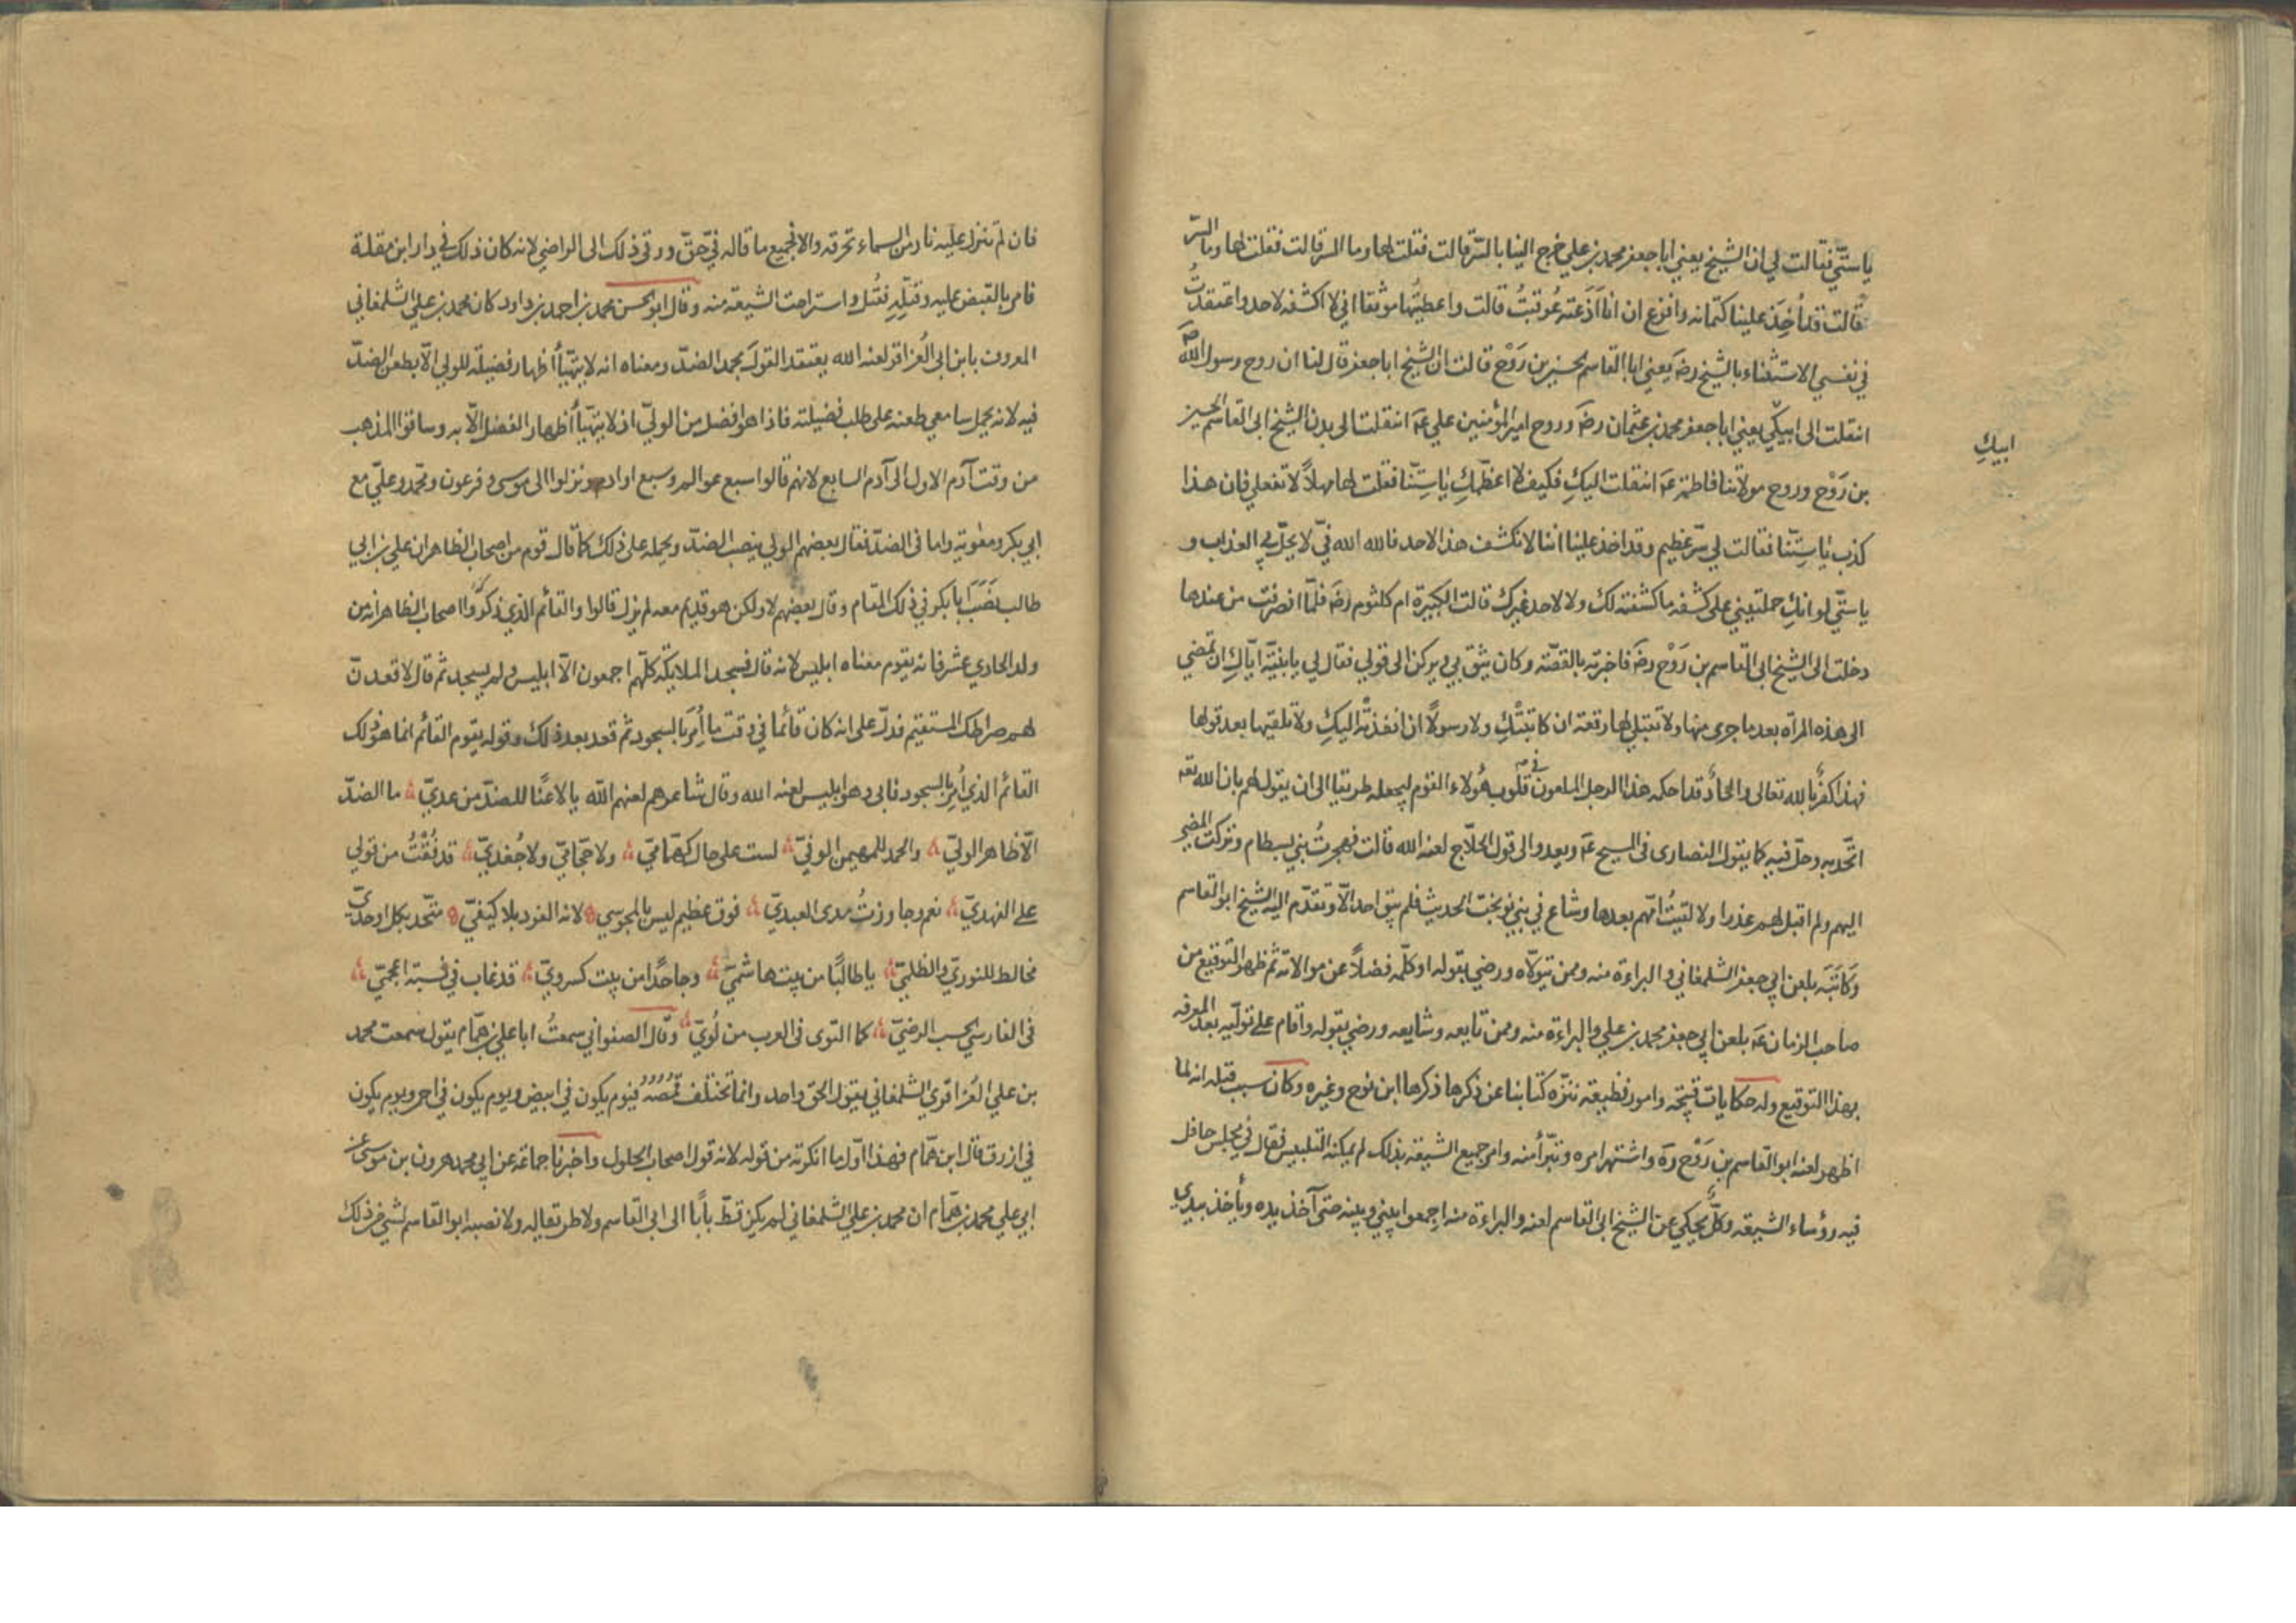 يا ستّي فقالت لي ان الشيخ يعني ابا جعفر محمد بن علي خرج الينا بالسّر قالت فقلت لها وما السر قالت فقلت لها وما السّر
قالت قد اُخِذَ علينا كتمانه وافزع ان انا اَذَعته عُوقبتُ قالت واعطيتُها موثقا اني لا اكشفه لاحد واعتقدتُ
في نفسي الاستثناء بالشيخ رضَ يعني ابا القاسم الحسين بن رَوْح قالت ان الشيخ ابا جعفر قال لنا ان روح رسول الله صَ
انتقلت الى ابيكي يعني ابا جعفر محمد بن عثمان رضَ وروح امير المؤمنين علي عَ انتقلت الى بدن الشيخ ابي القاسم الحسين
ابيكِ
بن رَوْح وروح مولاتنا فاطمة عَ انتقلت اليكِ فكيف لا اعظّمكِ ياستِّنا فقلت لها مهلاً لا تفعلي فان هذا
كذب ياستِّنا فقالت لي سّر عظيم وقد اخذ علينا اننا لا نكشف هذا لاحد فالله الله فيّ لا يحلّ بي العذاب و
ياستّي لو انكِ حملتيني على كشفه ما كشفته لك ولا لاحد غيرك قالت الكبيرة ام كلثوم رضَ فلمّا انصرفت من عندها
دخلت الى الشيخ ابي القاسم بن رَوْح رضَ فاخبرته بالقصّة وكان يثق بي ويركن الى قولي فقال لي يا بنيّة ايّاكِ ان تمضي
الى هذه المرأه بعد ما جرى منها ولا تقبلي لها رقعة ان كاتبتْكِ ولا رسولاً ان انفذته اليكِ ولا تلقيها بعد قولها
فهذا كفرٌ بالله تعالى والحادٌ قد احكمه هذا الرجل الملعون في قلوب هؤلاء القوم ليجعله طريقا الى ان يقول لهم بان الله تعَ
اتّحد به وحلّ فيه كما يقول النصارى في المسيح عَ ويعدو الى قول الحلّاج لعنه الله قالت فهجرتُ بني بسطام وتركت المضي
اليهم ولم اقبل لهم عذرا ولا لقيتُ امّهم بعدها وشاع في بني نوبخت الحديث فلم يبق احد الّا وتقدّم اليه الشيخ ابو القاسم
وَكَاتَبَه بلعن ابي جعفر الشلمغاني والبراءة منه وممن يتولّاه ورضي بقوله او كلّمه فضلاً عن موالاته ثم ظهر التوقيع من
صاحب الزمان عَ بلعن ابي جعفر محمد بن علي والبراءة منه وممن تابعه وشايعه ورضي بقوله واقام على تولّيه بعد المعرفه
بهذا التوقيع وله حكايات قبيحة وامور فظيعه ننزّه كتابنا عن ذكرها ذكرها ابن نوح وغيره وكان سبب قتله انه لما
اظهر لعنه ابو القاسم بن رَوْح رهَ واشتهر امره وتبرّأ منه وامر جميع الشيعة بذلك لم يمكنه التلبيس فقال في مجلس حافل
فيه رؤساء الشيعه وكلٌّ يحكي عن الشيخ ابي القاسم لعنه والبراءة منه اجمعوا بيني وبينه حتى آخذ يده ويأخذ بيدي
فان لم تنزل عليه نار من السماء تحرقه والا فجميع ما قاله فيّ حقّ ورقى ذلك الى الراضي لانه كان ذلك في دار ابن مقلة
فامر بالقبض عليه وقتله فقُتل واستراحت الشيعة منه وقال ابو الحسن محمد بن احمد بن داود كان محمد بن علي الشلمغاني
المعروف بابن ابي العُزاقر لعنه الله يعتقد القول بحمد الضدّ ومعناه انه لا يتهيّأ اظهار فضيلة للولي الّا بطعن الضدّ
فيه لانه يحمل سامعي طعنه على طلب فضيلته فاذا هو افضل من الوليّ اذ لا يتهيّأ اظهار الفضل الّا به وساقوا المذهب
من وقت آدم الاول الى آدم السابع لانهم قالوا سبع عوالم وسبع اوادم ونزلوا الى موسى وفرعون ومحمّد وعليّ مع
ابي بكر ومعوية واما في الضدّ فقال بعضهم الولي ينصب الضدّ ويحمله على ذلك كما قال قوم من اصحاب الظاهر ان علي بن ابي
طالب نَصَبَ ابا بكر في ذلك المقام وقال بعضهم لا ولكن هو قديم معه لم يزل قالوا والقائم الذي ذكروا اصحاب الظاهر انه من
ولد الحادي عشر فانه يقوم معناه ابليس لانه قال فسجد الملايكة كلّهم اجمعون الّا ابليس ولم يسجد ثم قال لاقعدنّ
لهم صراطك المستقيم فدلّ على انه كان قائما في وقت ما اُمِرَ بالسجود ثم قعد بعد ذلك وقوله يقوم القائم انما هو ذلك
القائم الذي اُمر بالسجود فابى وهو ابليس لعنه الله وقال شاعرهم لعنهم الله يا لاعنًا للضدّ من عديّ ؞ ما الضدّ
الّا ظاهر الوليّ ؞ والحمد للمهيمن الوفيّ ؞ لست على حال كهّماميّ ؞ ولا حجّاميّ ولا جُغديّ ؞ قد فُقْتُ من قولي
على الفهديّ ؞ نعم وجاوزتُ مدى العبديّ ؞ فوق عظيم ليس بالمجوسي ؞ لانه الفرد بلا كيفيّ ؞ متّحد بكل اوحديّ
مخالط للنوريّ والظلميّ ؞ يا طالبًا من بيت هاشميّ ؞ وجاحدًا من بيت كسرويّ ؞ قد غاب في نسبة اعجميّ ؞
في الفارسي الحسب الرضيّ ؞ كما التوى في العرب من لُويّ ؞ وقال الصفواني سمعتُ ابا علي بن همّام يقول سمعت محمد
بن علي العُزاقري الشلمغاني يقول الحق واحد وانما تختلف قُمُصُه فيوم يكون في ابيض ويوم يكون في احمر ويوم يكون
في ازرق قال ابن همّام فهذا اوّل ما انكرته من قوله لانه قول اصحاب الحلول واخبرنا جماعة عن ابي محمد هرون بن موسى عن
ابي علي محمد بن همّام ان محمد بن علي الشلمغاني لم يكن قطّ بابًا الى ابي القاسم ولا طريقا له ولا نصبه ابو القاسم لشي من ذلك